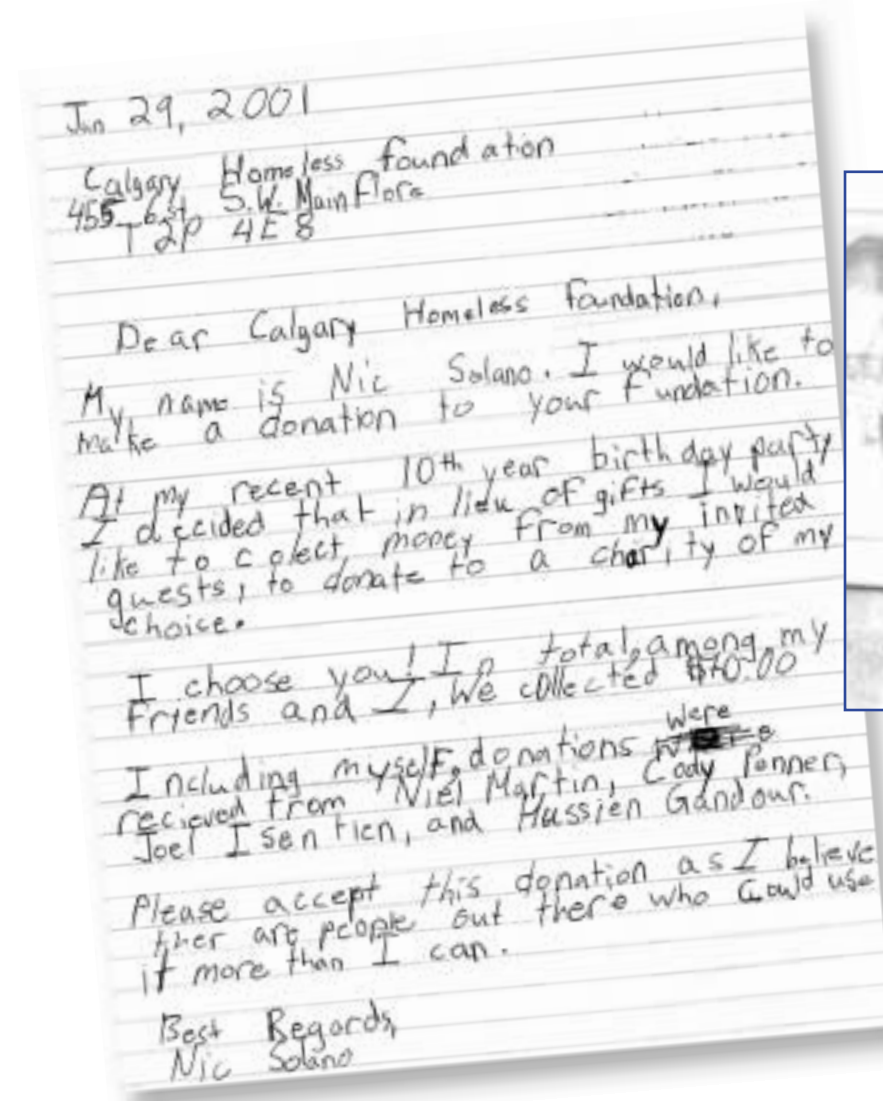 Jan 29, 2001
Calgary Homeless foundation
455 6 st S.W. Main Flore
T 2P 4E8
Dear Calgary Homeless foundation,
My name is Nic Solano. I would like to
make a donation to your fundation.
At my recent 10th year birthday party
I decided that in lieu of gifts I would
like to colect money from my invited
guests, to donate to a charity of my
choice.
I choose you! In total, among my
Friends and I, We collected
Including myself, donations were
recieved from Niel Martin, Cody Penner,
Joel and Hussien Gandour.
Please accept this donation as I believe
ther are people out there who could use
it more than I can.
Best Regards,
Nic Solano